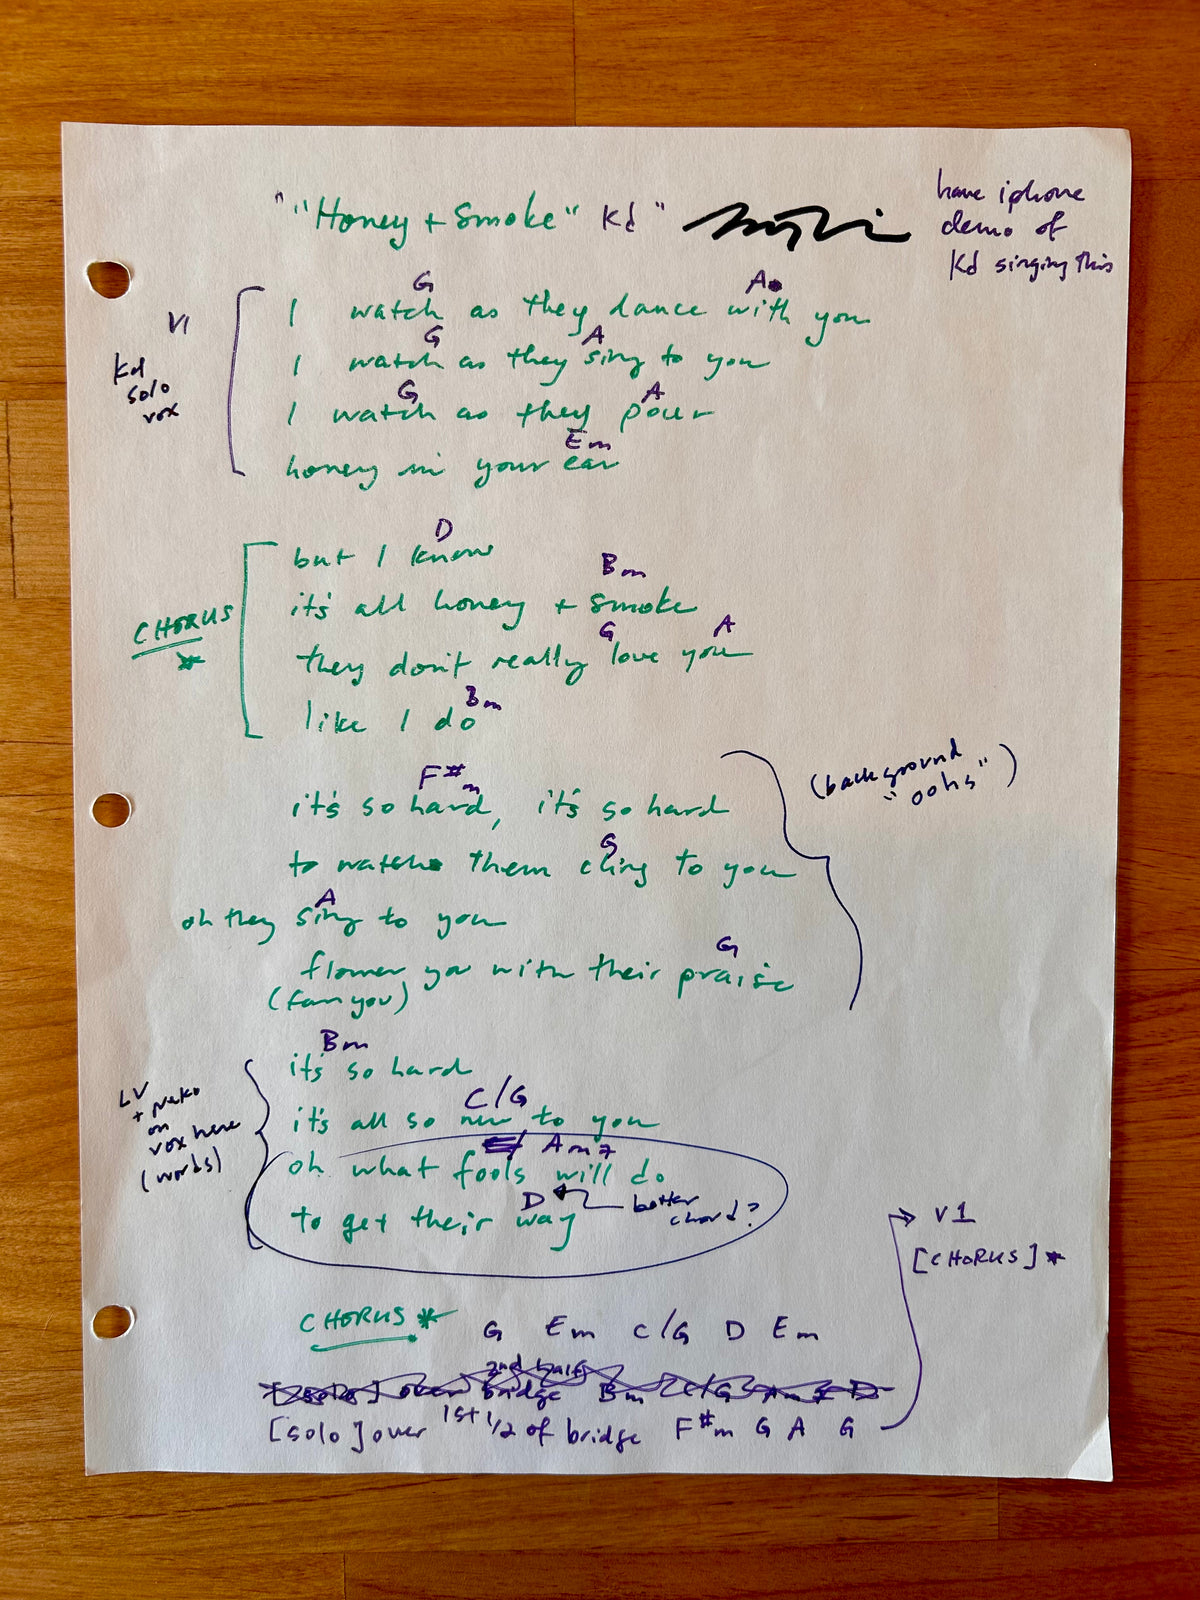 " "Honey + Smoke" Kd "
have iphone
demo of
Kd singing this
G A
I watch as they dance with you
V1
G A
I watch as they sing to you
Kd
solo
vox
G A
I watch as they pour
Em
honey in your ear
D
but I know
Bm
it's all honey + smoke
CHORUS
*
G A
they don't really love you
Bm
like I do
(background
"oohs")
F#m
it's so hard, it's so hard
G
to watch them cling to you
A
oh they sing to you
G
flower you with their praise
(fan you)
Bm
it's so hard
LV
+ Neko
on
vox here
(words)
C/G
it's all so new to you
Am7
oh what fools will do
D
better
chord?
to get their way
V1
[CHORUS]*
CHORUS *
G Em C/G D Em
2nd half
[solo] over bridge Bm C/G Am7 D
[solo] over 1st 1/2 of bridge F#m G A G